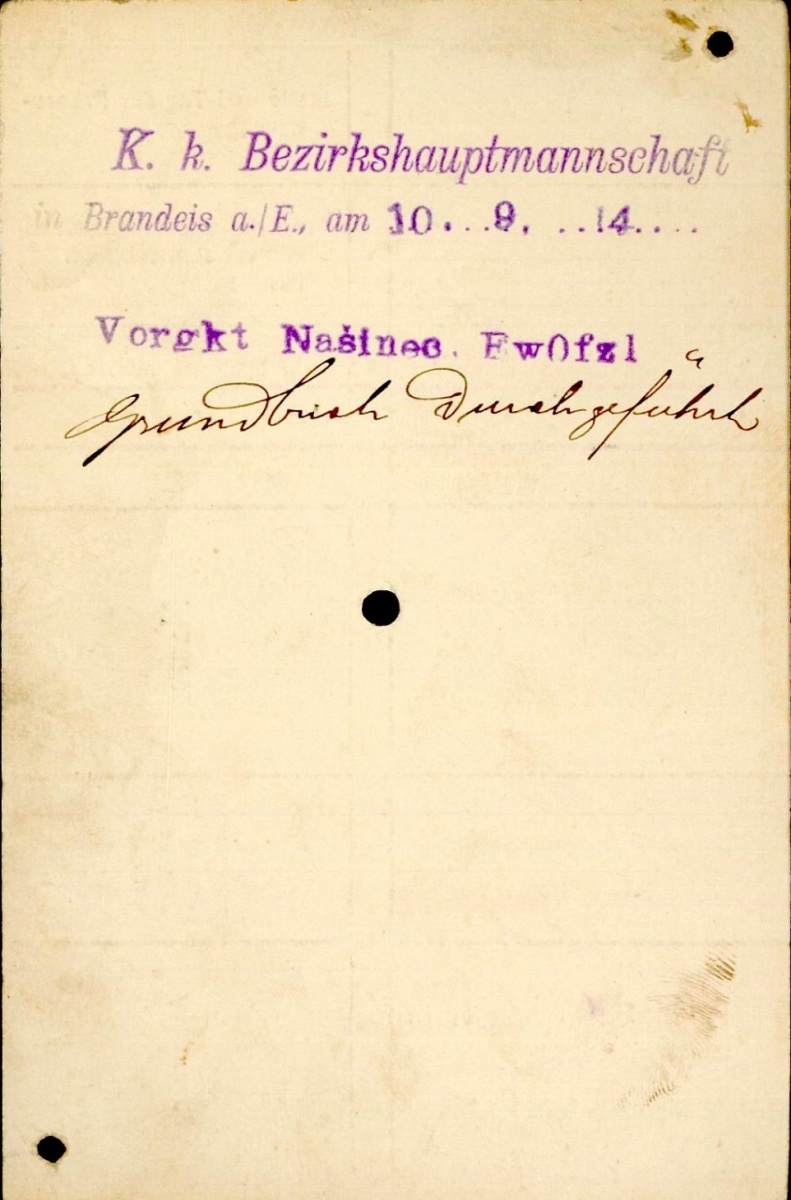 K. k. Bezirkshauptmannschaft
in Brandeis a./E., am 10...9. ..14....
Vorgkt Našinec. Ew0fzl
Grundbuch Durchgeführt